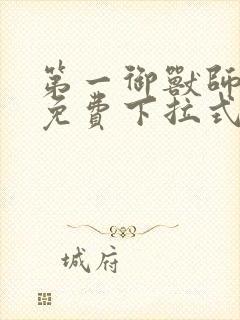 第一御獸師
免費下拉式
城府